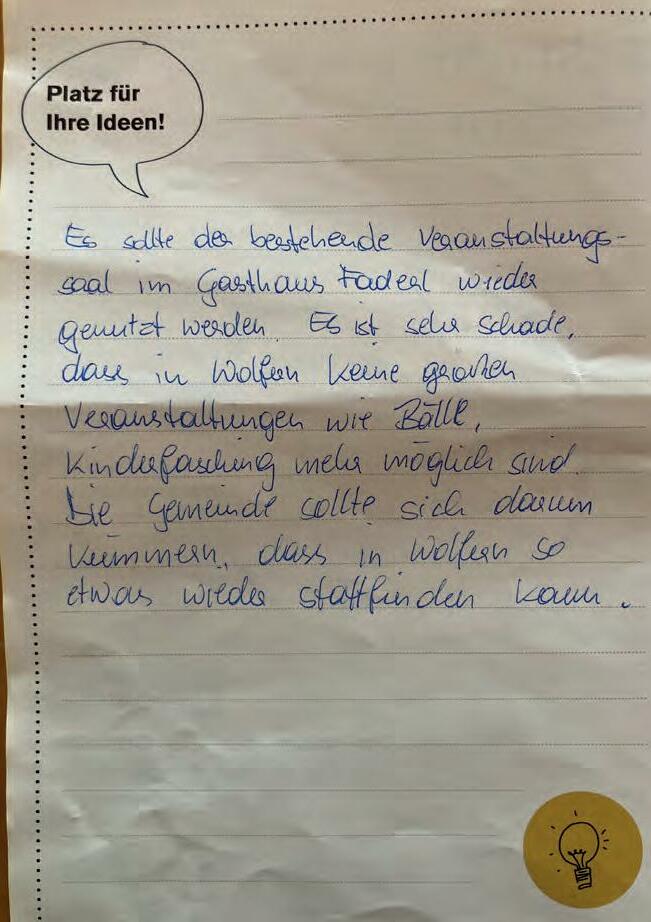 Platz für
Ihre Ideen!
Es sollte der bestehende Veranstaltungs-
saal im Gasthaus Faderl wieder
genutzt werden. Es ist sehr schade,
dass in Wolfern keine großen
Veranstaltungen wie Bälle,
Kinderfasching mehr möglich sind.
Die Gemeinde sollte sich darum
kümmern, dass in Wolfern so
etwas wieder stattfinden kann.